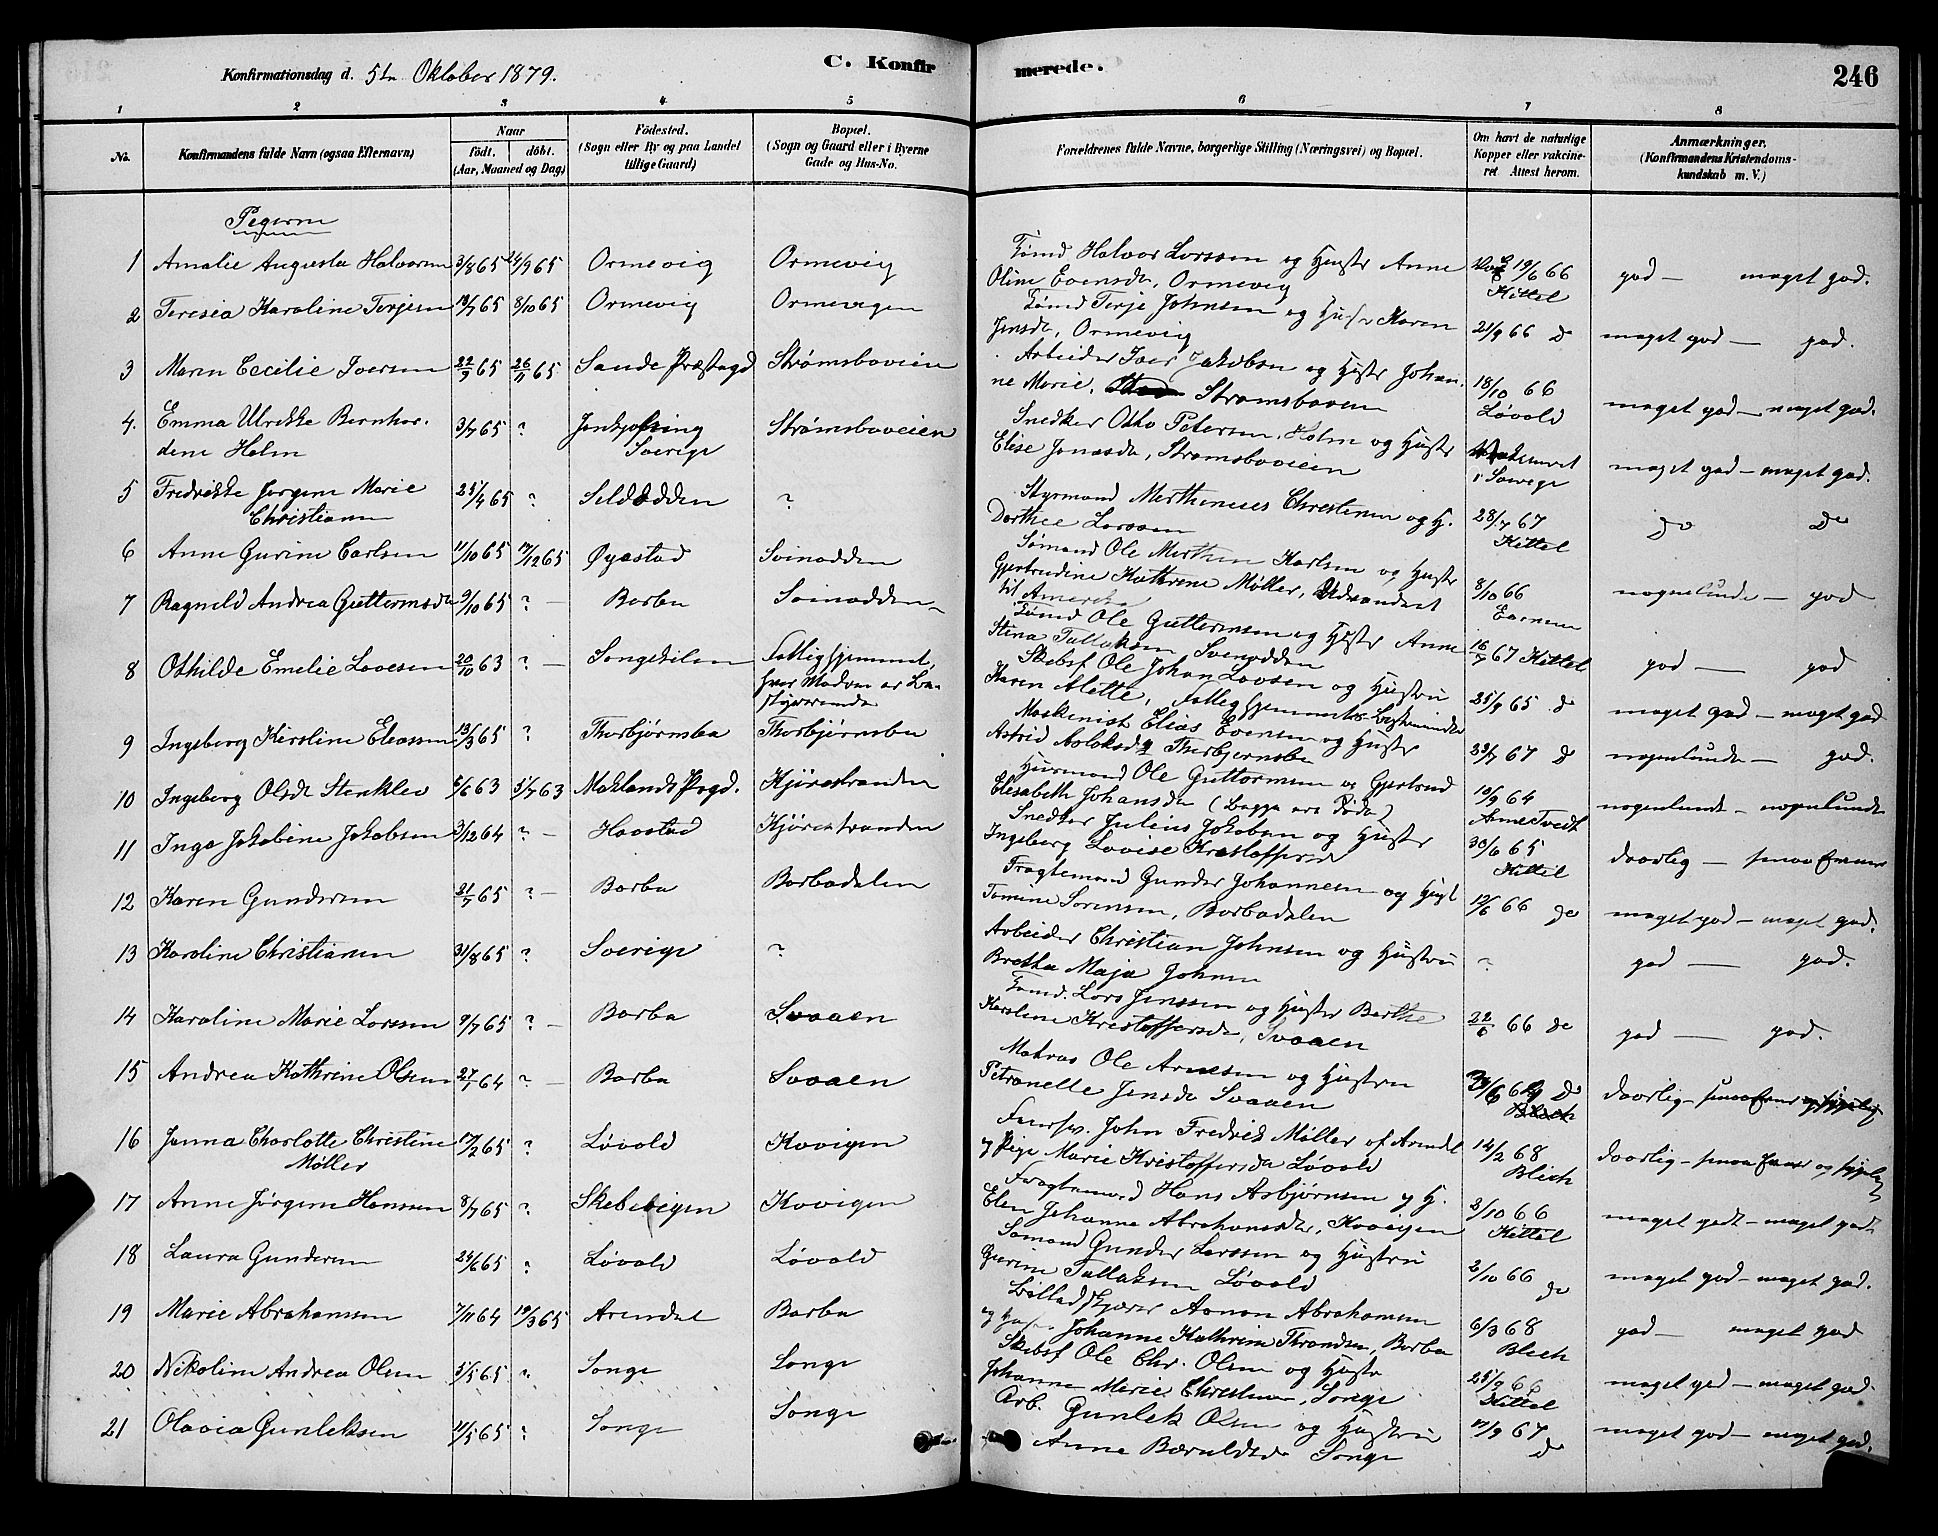 Konfirmationsdag d. 5te Oktober 1879. C. Konfirmerede. 246
1 2 3 4 5 6 7 8
No. Konfirmandens fulde Navn (ogsaa Efternavn) Naar født. døbt. (Aar, Maaned og Dag) Fødested. (Sogn eller By og paa Landet tillige Gaard) Bopæl. (Sogn og Gaard eller i Byerne Gade og Hus-No. Forældrenes fulde Navne, borgerlige Stilling (Næringsvei) og Bopæl. Om havt de naturlige Kopper eller vakcineret. Attest herom. Anmærkninger. (Konfirmandens Kristendomskundskab m. V.)
Pigerne
1 Amalie Augusta Halvorsen 3/8 65 24/9 65 Ormevig Ormevig Sømd Halvor Larssen og Hustr Anne 19/6 66 god — meget god.
Oline Evensdr, Ormevig Kittel
2 Teresia Karoline Terjesen 13/7 65 8/10 65 Ormevig Ormevigen Sømd Terje Johnsen og Hustr Karen
Jensdr, Ormevig 21/9 66 do meget god — god.
3 Maren Cecilie Iversen 22/9 65 26/11 65 Sande Præstegd Strømsboveien Arbeider Iver Jakobsen og Hustr Johan-
ne Marie, Strømsboveien 18/10 66 Løvold meget god — meget god.
4. Emma Ulrikke Bernhar- 3/7 65 ? Jønkjøbing Strømsboveien Snedker Otto Petersen Holm og Hustr
dine Holm Sverige Elise Jonasdr, Strømsboveien i Sverige meget god — meget god.
5 Fredrikke Jørgine Marie 25/4 65 ? Seldodden ? Styrmand Merthinius Christensen og H.
Christiansen Dorthee Larssen 28/7 67 Kittel do do
6 Anne Gurine Carlsen 11/10 65 17/12 65 Øyestad Svinodden Sømand Ole Merthin Karlsen og Hustr
Gjertrudine Kathrine Møller, Udvandret 8/10 66 nogenlunde — god
til Amerika
7 Ragnild Andrea Guttormsdr 9/10 65 ? — Barbu Svinodden Sømd Ole Guttormsen og Hustr Anne
Stina Tallaksen Svinodden 16/7 67 Kittel god — god
8 Othilde Emilie Lovesen 20/10 63 ? — Songekilen Fattighjemmet, Skibsf Ole Johan Lovsen og Hustru
hvor Modren er Be- Karen Alette, Fattighjemmets Bestyrerinde 25/9 65 do meget god — meget god
styrerinde
9 Ingeborg Kirstine Eliassen 13/3 65 ? Thorbjørnsbu Thorbjørnsbu Maskinist Elias Evensen og Hustr
Astrid Aslaksdr Thorbjørnsbu 23/7 67 do nogenlunde — god.
10 Ingeborg Olsdr Stenklev 5/6 63 5/7 63 Moklands Prgd. Kjørestranden Huusmand Ole Guttormsen og Gjertrud
Elisabeth Johansdr (Begge ere Døde) 10/9 64 Arne Tvedt nogenlunde — nogenlunde
11 Inga Jakobine Jakobsen 3/12 64 ? — Haastad Kjørestranden Snedker Julius Jakobsen og Hustr
Ingeborg Lovise Kristoffersdr 30/6 65 Kittel daarlig — smaa Evner
12 Karen Gundersen 21/7 65 ? — Barbu Barbudalen Fragtemand Gunder Johannesen og Hust
Tomine Sørensen, Barbudalen 12/6 66 do meget god — meget god.
13 Karoline Christiansen 31/8 65 ? Sverige ? Arbeider Christian Johnsen og Hustru
Bretha Maja Johnsen ? god — god.
14 Karoline Marie Larssen 9/7 65 ? — Barbu Svaaen Sømd. Lars Jenssen og Hustr Berthe
Karoline Kristoffersdr, Svaaen 22/6 66 do god — god.
15 Andrea Kathrine Olsen 27/7 64 ? — Barbu Svaaen Matros Ole Arnesen og Hustru
Petronelle Jensdr Svaaen do daarlig — smaa Evner
16 Janna Charlotte Christine 17/2 65 ? Løvold Kovigen John Fredrik Møller af Arendal
Møller og Pige Marie Kristoffersdr Løvold 14/2 68 Blich daarlig — smaa Evner og
17 Anne Jørgine Hanssen 8/7 65 ? Skibvigen Kovigen Fragtemand Hans Asbjørnsen og H.
Elen Johanne Abrahamsdr, Kovigen 2/10 66 Kittel meget godt — meget godt
18 Laura Gundersen 24/6 65 ? Løvold Løvold Sømand Gunder Larssen og Hustru
Gurine Tallaksen Løvold 2/10 66 do meget god — meget god.
19 Marie Abrahamsen 7/11 64 19/3 65 Arendal Barbu Aanon Abrahamsen
og Hustr. Johanne Kathrine Throndsen, Barbu 6/3 68 Blich god — meget god
20 Nikoline Andrea Olsen 5/5 65 ? Songe Songe Skibsf Ole Chr. Olsen og Hustr
Johanne Marie Christensen, Songe 25/9 66 Kittel meget god — meget god.
21 Olavia Gunleksen 11/5 65 ? Songe Songe Arb. Gunlek Olsen og Hustru
Anne Bærulsdr Songe 17/9 67 do meget god — meget god.